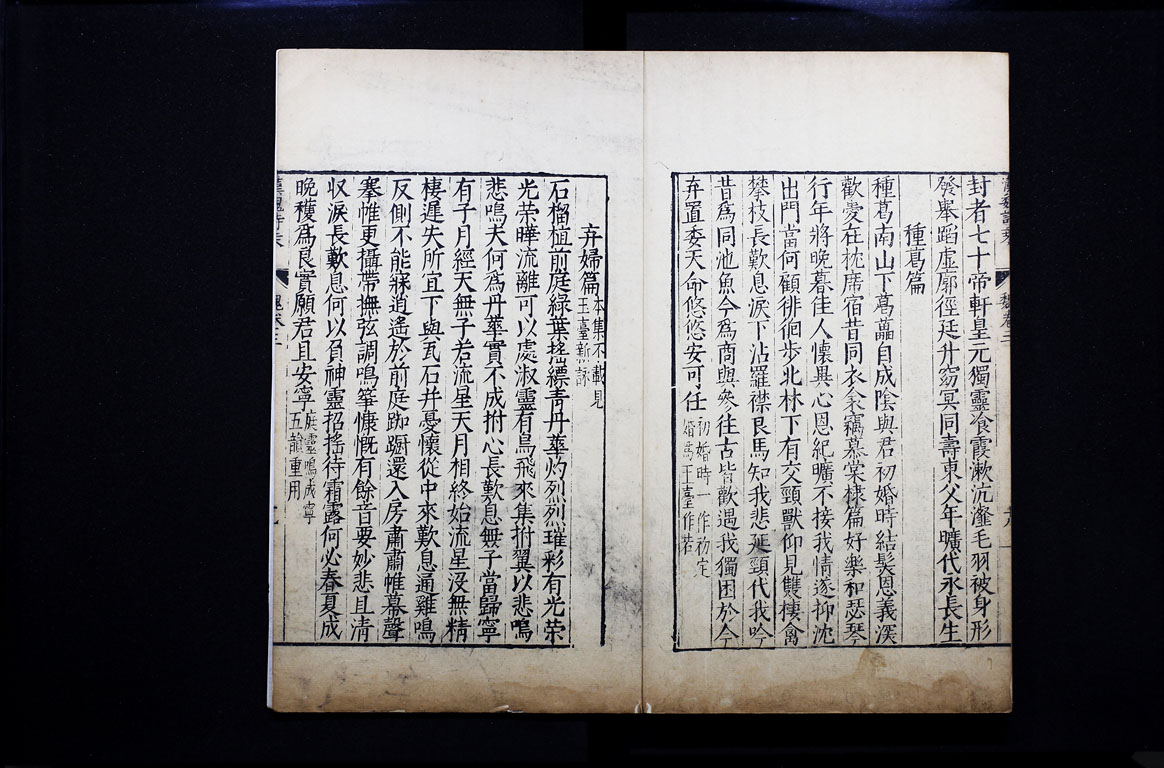 封者七十帝軒皇元獨靈飡霞漱沆瀣毛羽被身形
發舉蹈虛廓徑廷升窈冥同壽東父年曠代永長生
種葛篇
種葛南山下葛藟自成陰與君初婚時結髮恩義深
歡愛在枕席宿昔同衣衾竊慕棠棣篇好樂和瑟琴
行年將晚暮佳人懷異心恩紀曠不接我情遂抑沈
出門當何顧徘徊步北林下有交頸獸仰見雙棲禽
攀枝長歎息淚下沾羅襟良馬知我悲延頸代我吟
昔爲同池魚今爲商與參往古皆歡遇我獨困於今
弃置委天命悠悠安可任
初婚時一作初定
婚爲玉臺作若
弃婦篇
本集不載見
玉臺新詠
石榴植前庭綠葉搖縹青丹華灼烈烈璀彩有光榮
光榮曄流離可以處淑靈有鳥飛來集拊翼以悲鳴
悲鳴夫何爲丹華實不成拊心長歎息無子當歸寧
有子月經天無子若流星天月相終始流星沒無精
棲遲失所宜下與瓦石并憂懷從中來歎息通雞鳴
反側不能寐逍遙於前庭踟躕還入房肅肅帷幕聲
搴帷更攝帶撫弦調鳴箏慷慨有餘音要妙悲且清
収淚長歎息何以負神靈招搖待霜露何必春夏成
晚穫爲良實願君且安寧
庭靈鳴成寧
五韻重用